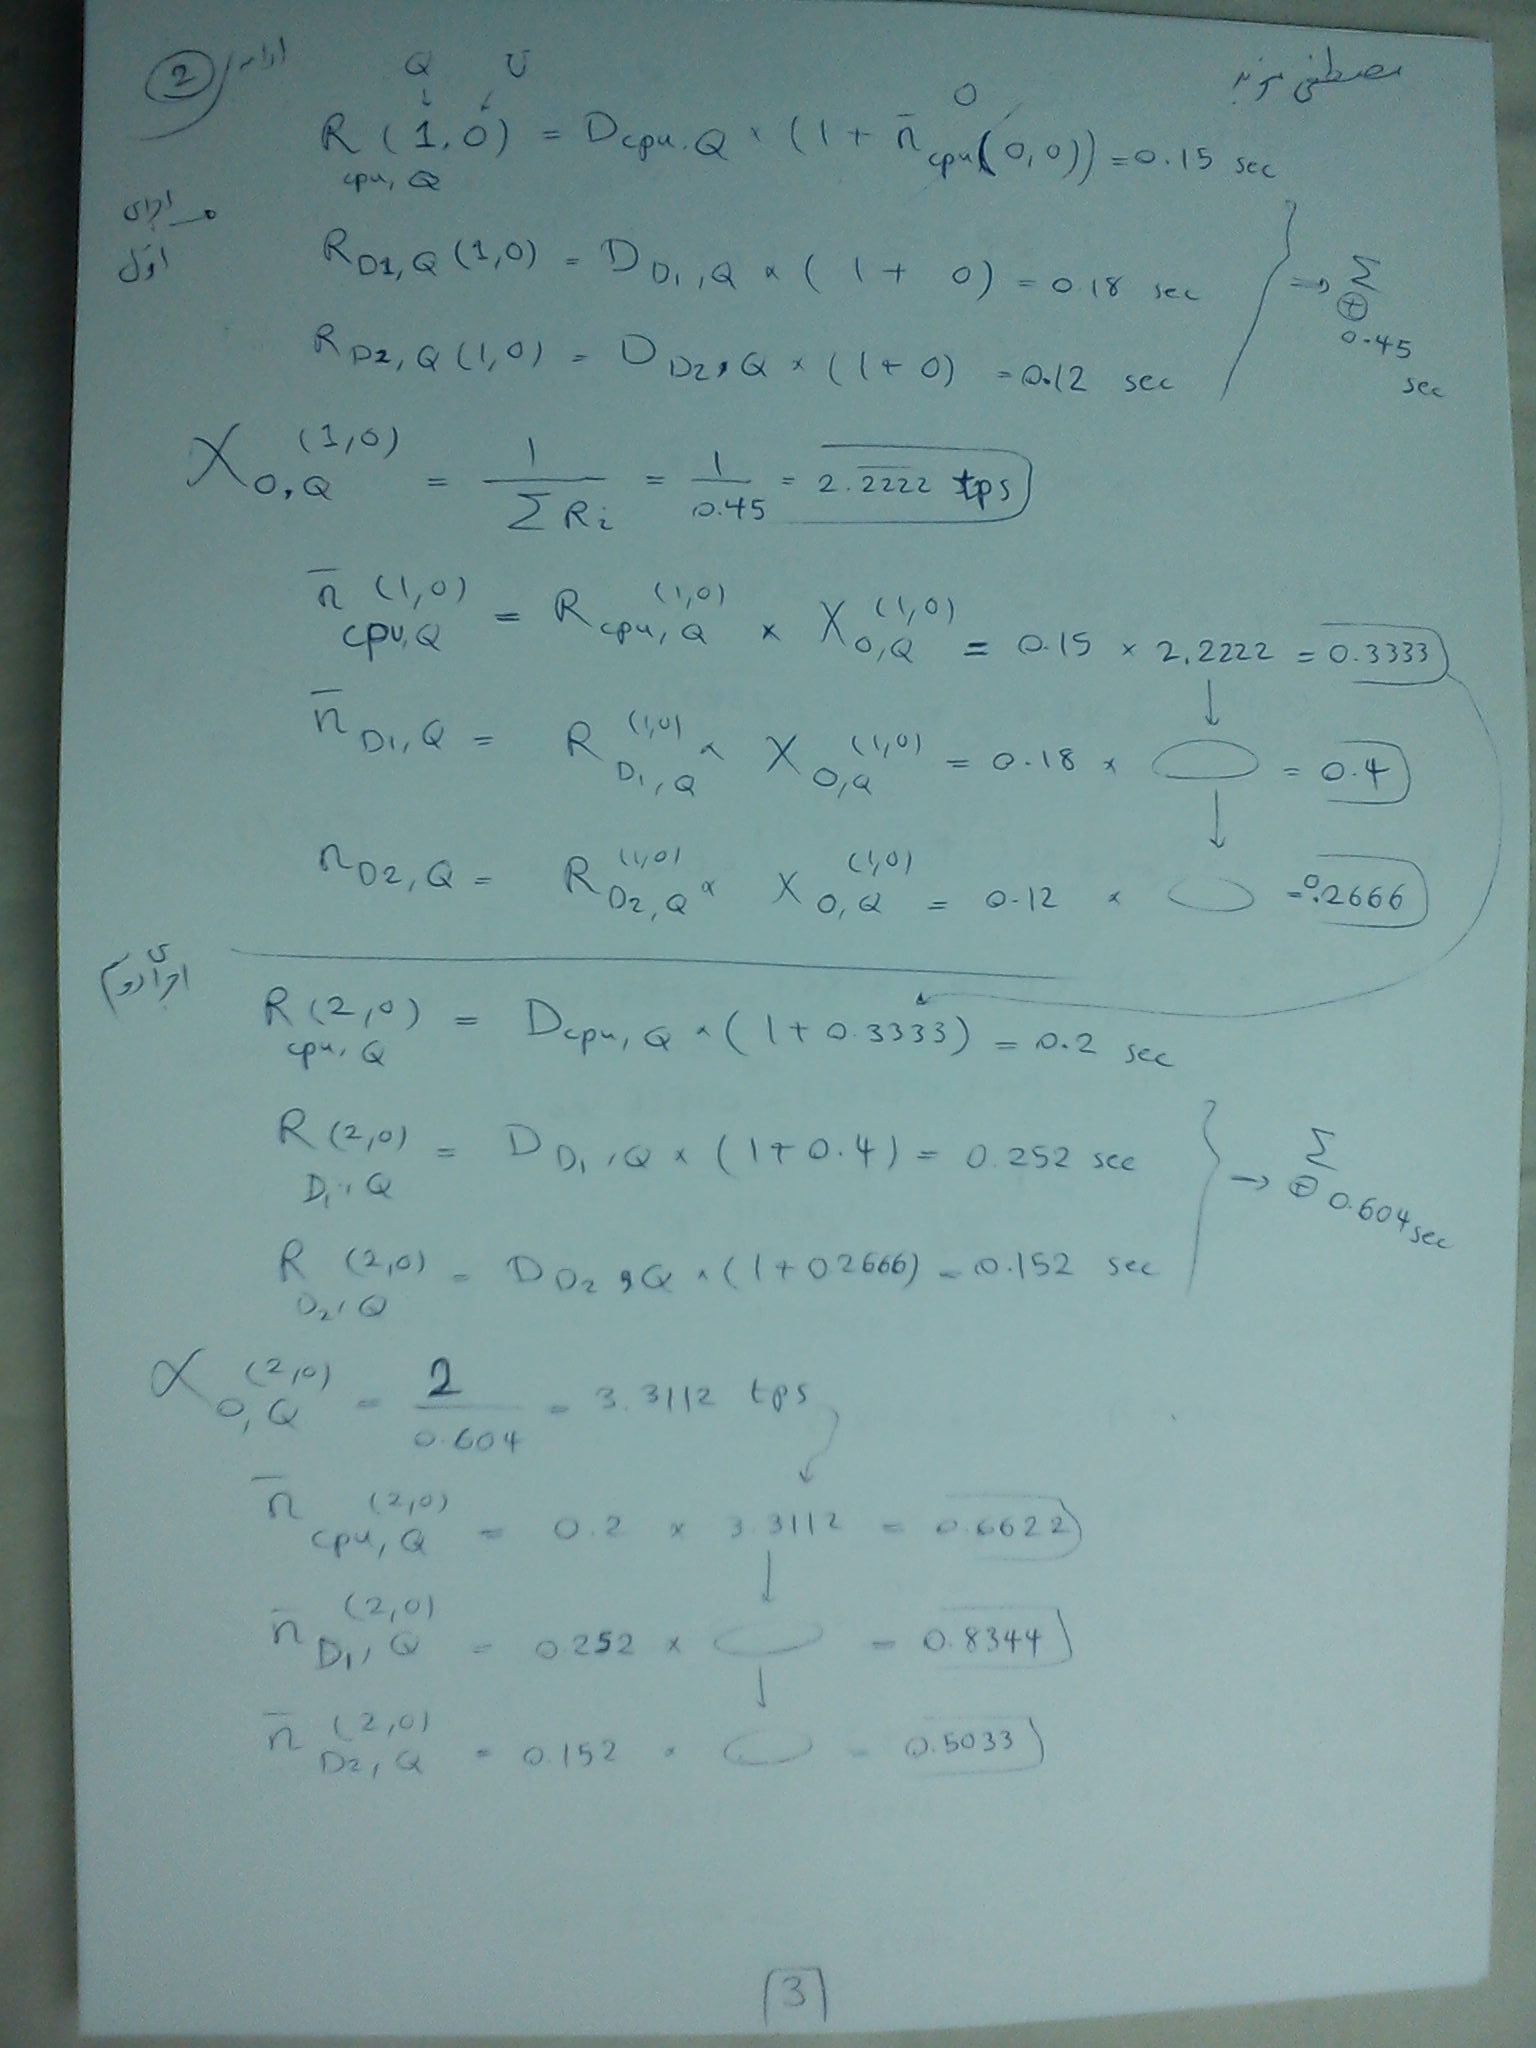 2 ادامه
مصطفی
Q U
R cpu, Q (1,0) = D cpu,Q × (1 + n̄ cpu(0,0)) = 0.15 sec
0
اجرای
اول
R D1,Q (1,0) = D D1,Q × (1 + 0) = 0.18 sec
R D2,Q (1,0) = D D2,Q × (1+0) = 0.12 sec
→ Σ ⊕ 0.45 sec
X 0,Q (1,0) = 1 / Σ Ri = 1 / 0.45 = 2.2222 tps
n̄ cpu,Q (1,0) = R cpu,Q (1,0) × X 0,Q (1,0) = 0.15 × 2.2222 = 0.3333
n̄ D1,Q = R D1,Q (1,0) × X 0,Q (1,0) = 0.18 × = 0.4
n D2,Q = R D2,Q (1,0) × X 0,Q (1,0) = 0.12 × = 0.2666
اجرای دوم
R cpu,Q (2,0) = D cpu,Q × (1+0.3333) = 0.2 sec
R D1,Q (2,0) = D D1,Q × (1+0.4) = 0.252 sec
→ Σ ⊕ 0.604 sec
R D2,Q (2,0) = D D2,Q × (1+0.2666) = 0.152 sec
X 0,Q (2,0) = 2 / 0.604 = 3.3112 tps
n̄ cpu,Q (2,0) = 0.2 × 3.3112 = 0.6622
n̄ D1,Q (2,0) = 0.252 × = 0.8344
n̄ D2,Q (2,0) = 0.152 × = 0.5033
3